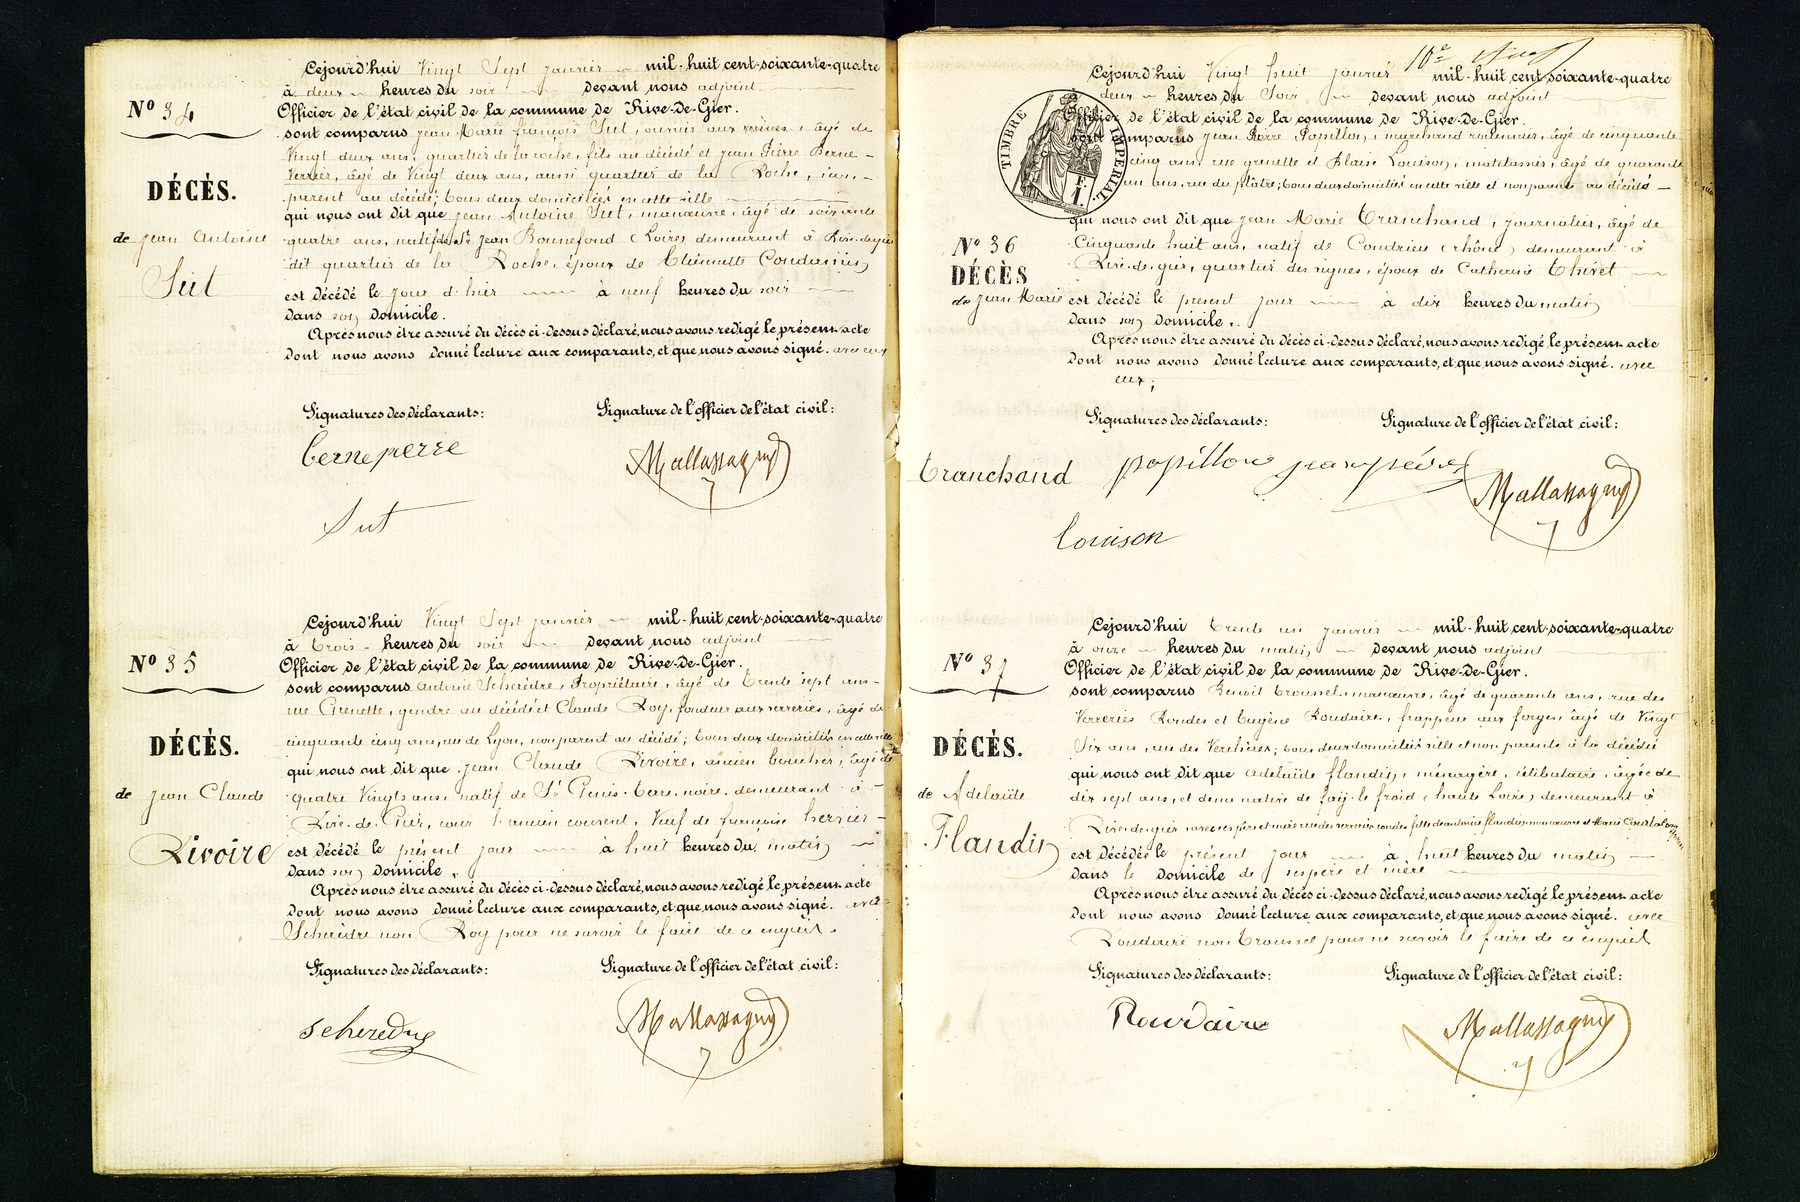 Cejourd'hui Vingt Sept janvier mil-huit cent-soixante-quatre
à deux heures du soir devant nous adjoint
Officier de l'état civil de la commune de Rive-De-Gier.
sont comparus jean Marie françois Sut, ouvrier aux mines, âgé de
Vingt deux ans, quartier de la roche, fils au décédé et jean Pierre Berne
Verrier, âgé de Vingt deux ans, aussi quartier de la Roche, non
parent au décédé; tous deux domiciliés en cette ville
qui nous ont dit que jean Antoine Sut, manœuvre, âgé de soixante
quatre ans, natif de St jean Bonnefond (Loire) demeurant à Rive-de-gier
dit quartier de la Roche, époux de
est décédé le jour d'hier à neuf heures du soir
dans son domicile.
Après nous être assuré du décès ci-dessus déclaré, nous avons redigé le présent acte
dont nous avons donné lecture aux comparants, et que nous avons signé. avec eux
Signatures des déclarants: Signature de l'officier de l'état civil:
Berne pierre Mallassagny
Sut
N° 34
DÉCÈS.
de jean Antoine
Sut
Cejourd'hui Vingt Sept janvier mil-huit cent-soixante-quatre
à trois heures du soir devant nous adjoint
Officier de l'état civil de la commune de Rive-De-Gier.
sont comparus antoine Propriétaire, âgé de trente sept ans
rue Grenette, gendre au décédé et Claude Roy, fondeur aux verreries, âgé de
cinquante cinq ans, rue de Lyon, non parent au décédé; tous deux domiciliés en cette ville
qui nous ont dit que jean Claude Rivoire, ancien boucher, âgé de
quatre Vingts ans, natif de St Genis-terre-noire demeurant à
Rive-de-Gier, cour l'ancien couvent, Veuf de françoise
est décédé le présent jour à huit heures du matin
dans son domicile.
Après nous être assuré du décès ci-dessus déclaré, nous avons redigé le présent acte
dont nous avons donné lecture aux comparants, et que nous avons signé. avec
non Roy pour ne savoir le faire de ce enquis.
Signatures des déclarants: Signature de l'officier de l'état civil:
Mallassagny
N° 35
DÉCÈS.
de jean Claude
Rivoire
Cejourd'hui Vingt huit janvier mil-huit cent-soixante-quatre
à deux heures du Soir devant nous adjoint
Officier de l'état civil de la commune de Rive-De-Gier.
sont comparus jean Pierre Papillon, marchand âgé de cinquante
cinq ans, rue grenette et Blaise Louison, matelassier, âgé de quarante
un ans, rue du plâtre; tous deux domiciliés en cette ville et non parents au décédé
qui nous ont dit que jean Marie tranchand, journalier, âgé de
Cinquante huit ans, natif de Condrieu (rhône) demeurant à
Rive-de-gier, quartier des vignes, époux de Catherine thivet
est décédé le présent jour à dix heures du matin
dans son domicile.
Après nous être assuré du décès ci-dessus déclaré, nous avons redigé le présent acte
dont nous avons donné lecture aux comparants, et que nous avons signé. avec
eux;
Signatures des déclarants: Signature de l'officier de l'état civil:
papillon jean pierre Mallassagny
Louison
TIMBRE IMPERIAL
F.
1.
N° 36
DÉCÈS
de jean Marie
tranchand
Cejourd'hui trente un janvier mil-huit cent-soixante-quatre
à onze heures du matin devant nous adjoint
Officier de l'état civil de la commune de Rive-De-Gier.
sont comparus Benoit troussel, manœuvre, âgé de quarante ans, rue des
Verreries Rondes et Eugène Roudaire, frappeur aux forges, âgé de Vingt
Six ans, rue des Verchères; tous deux domiciliés ville et non parents à la décédée
qui nous ont dit que adelaïde flandin, ménagère, célibataire, âgée de
dix sept ans, et demi native de faÿ-le froid (haute Loire) demeurant à
Rive-de-gier avec ses père et mère rue des verreries rondes fille de antoine flandin manœuvre et Marie
est décédée le présent jour à huit heures du matin
dans le domicile de ses père et mère
Après nous être assuré du décès ci-dessus déclaré, nous avons redigé le présent acte
dont nous avons donné lecture aux comparants, et que nous avons signé. avec
Roudaire non troussel pour ne savoir le faire de ce enquis
Signatures des déclarants: Signature de l'officier de l'état civil:
Roudaire Mallassagny
N° 37
DÉCÈS.
de Adelaïde
Flandin